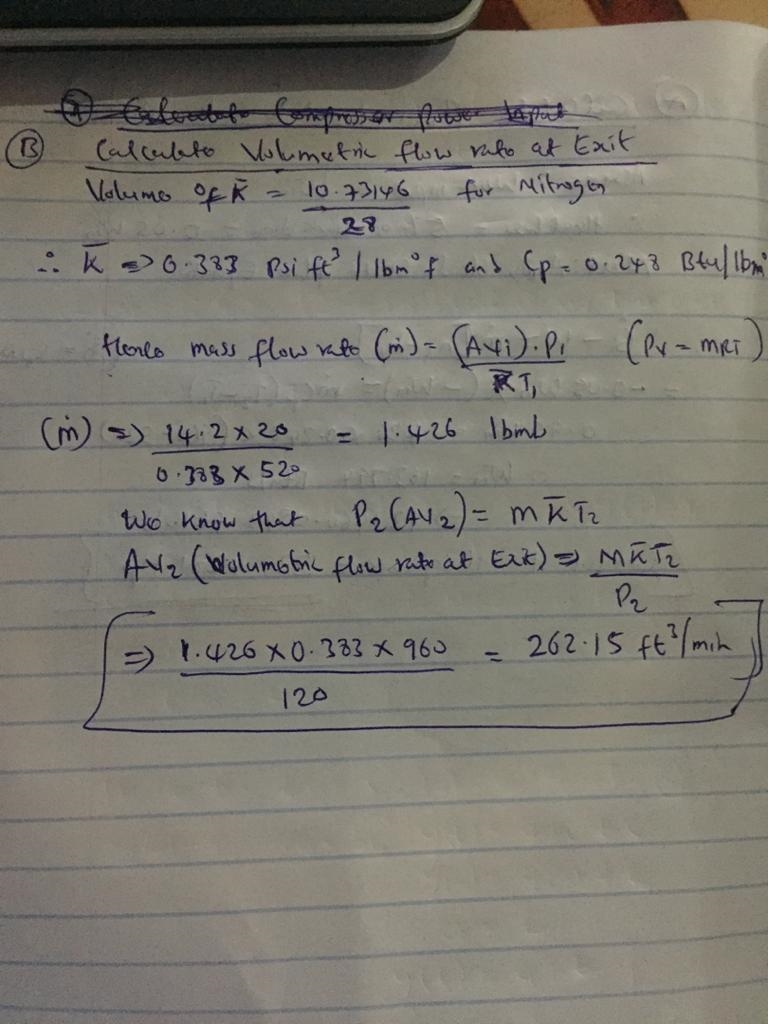 Ⓐ Calculate Compressor Power Input
Ⓑ Calculate Volumetric flow rate at Exit
Volume of R̄ = 10.73146 / 28 for Nitrogen
∴ R̄ => 0.383 Psi ft³ / lbm°f and Cp = 0.248 Btu/lbm°
Hence mass flow rate (ṁ) = (AV1).P1 / R̄T1 (PV = MRT)
(ṁ) => 14.2 x 20 / 0.383 x 520 = 1.426 lbmb
We know that P2(AV2) = m R̄ T2
AV2 (Volumetric flow rate at Exit) => M R̄ T2 / P2
=> 1.426 x 0.383 x 960 / 120 = 262.15 ft³/min